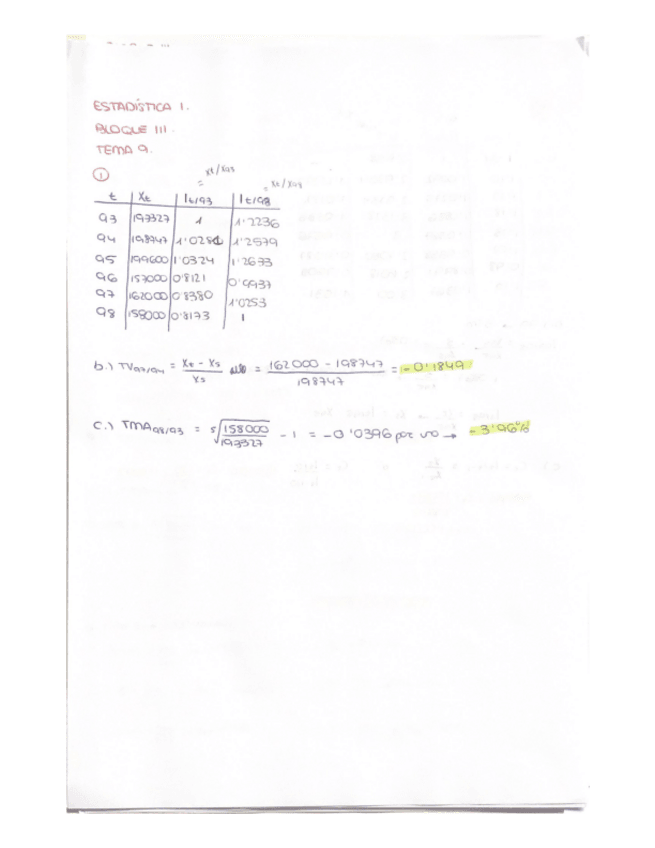 ESTADÍSTICA I.
BLOQUE III.
TEMA 9.
①
= xt/x93 = xt/x98
t Xt It/93 It/98
93 193327 1 1'2236
94 198747 1'0280 1'2579
95 199600 1'0324 1'2633
96 157000 0'8121 0'9937
97 162000 0'8380 1'0253
98 158000 0'8173 1
b.) TV97/94 = Xt - Xs / Xs = 162000 - 198747 / 198747 = -0'1849
c.) TMA98/93 = 5√158000/193327 - 1 = -0'0396 por uno → -3'96%